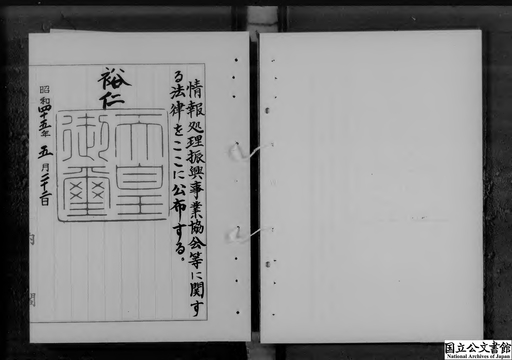 情報処理振興事業協会等に関す
る法律をここに公布する。
裕仁
天皇
御璽
昭和四十五年五月二十二日
内閣
国立公文書館
National Archives of Japan